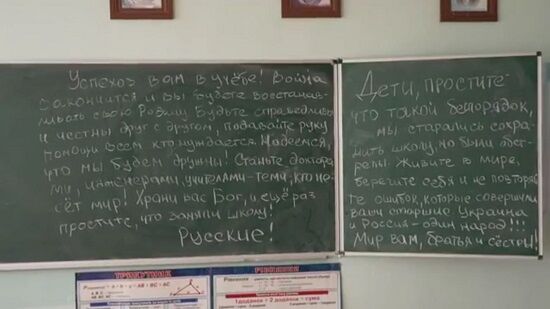 Успехов вам в учёбе! Война
закончится и вы будете восстанав-
ливать свою Родину. Будьте справедливы
и честны друг с другом, подавайте руку
помощи всем кто нуждается. Надеемся,
что мы будем дружны! Станьте доктора-
ми, инженерами, учителями - теми, кто не-
сёт мир! Храни вас Бог, и ещё раз
простите, что заняли школу!
Русские!
Дети, простите
что такой беспорядок,
мы старались сохра-
нить школу, но были обст-
релы. Живите в мире,
берегите себя и не повторяй-
те ошибок, которые совершили
ваши старшие Украина
и Россия - один народ!!!
Мир вам, братья и сёстры!
ТРИКУТНИК
P = AB + BC + AC
РІВНЯННЯ
1 доданок + 2 доданок = сума